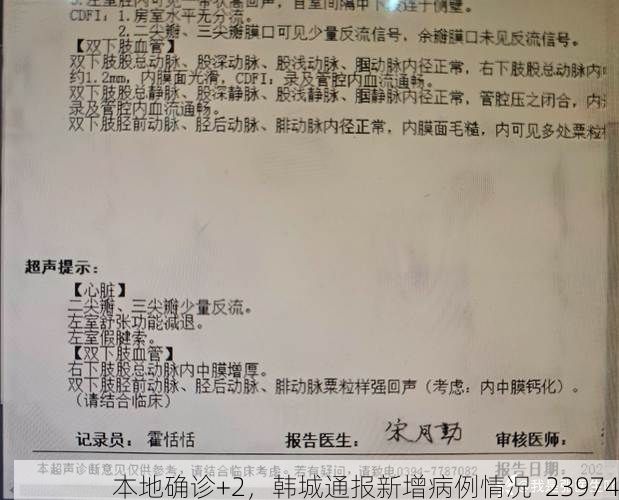 3.左室腔内可见一带状塞回声，自室间隔中下段连于侧壁。
CDFI：1.房室水平无分流。
2.二尖瓣、三尖瓣膜口可见少量反流信号，余瓣膜口未见反流信号。
【双下肢血管】
双下肢股总动脉、股深动脉、股浅动脉、腘动脉内径正常，右下肢股总动脉内
约1.2mm，内膜面光滑，CDFI：录及管腔内血流通畅。
双下肢股总静脉、股深静脉、股浅静脉、腘静脉内径正常，管腔压之闭合，内
录及管腔内血流通畅。
双下肢胫前动脉、胫后动脉、腓动脉内径正常，内膜面毛糙，内可见多处粟粒
超声提示：
【心脏】
二尖瓣、三尖瓣少量反流。
左室舒张功能减退。
左室假腱索。
【双下肢血管】
右下肢股总动脉内中膜增厚。
双下肢胫前动脉、胫后动脉、腓动脉粟粒样强回声（考虑：内中膜钙化）。
（请结合临床）
记录员： 霍恬恬 报告医生： 宋月勤 审核医师：
本超声诊断意见仅供参考，请结合临床考虑。若有疑问，请致电0394-7787082 报告日期： 202
本地确诊+2，韩城通报新增病例情况-23974